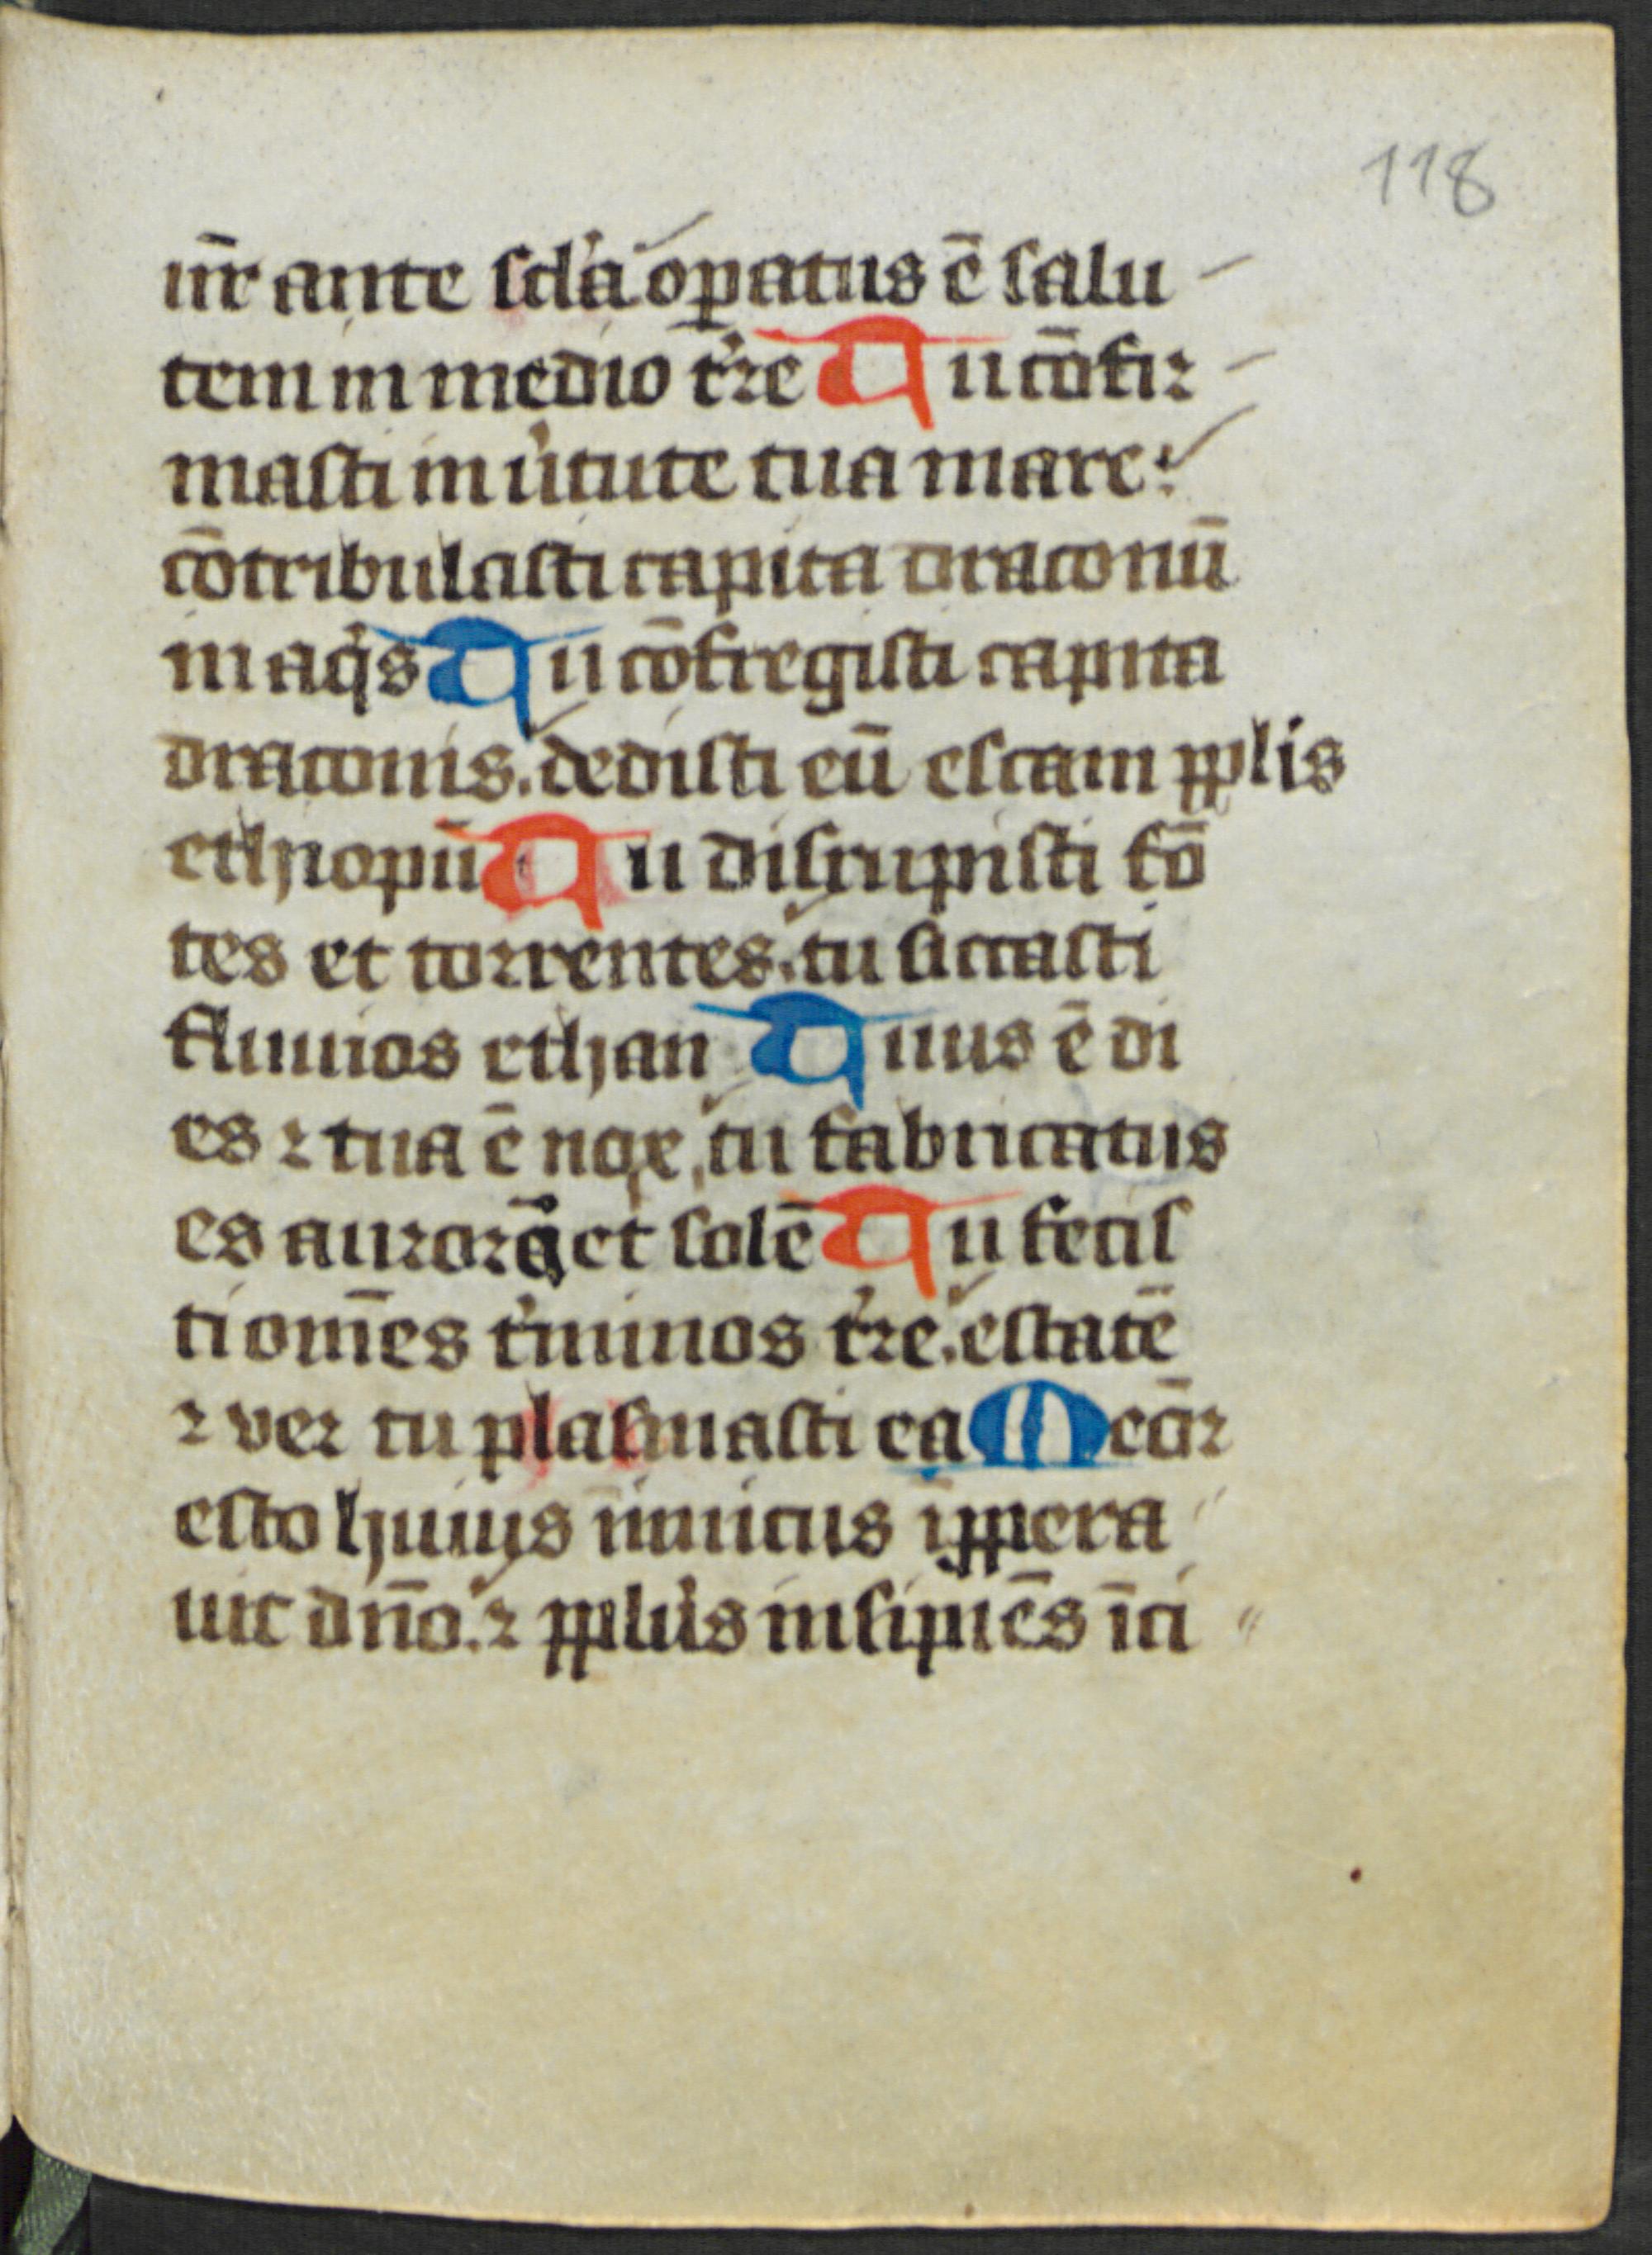 118
nr̄ ante scl'a oꝑatus ē salu-
tem in medio t're Tu cōfir-
masti in u'tute tua mare:
cōtribulasti capita draconū
in aq's Tu cōfregisti capita
draconis. dedisti eū escam pplis
ethyopū Tu disrupisti fō
tes et torrentes. tu siccasti
fluuios ethan Tuus ē di
es ⁊ tua ē nox, tu fabricatus
es aurorā et solē Tu fecis
ti om̄es t'minos t're. estatē
⁊ ver tu plasmasti ea Mēor
esto huius inimicus īppera
uit dn̄o. ⁊ pplu's insipiēs īci〃